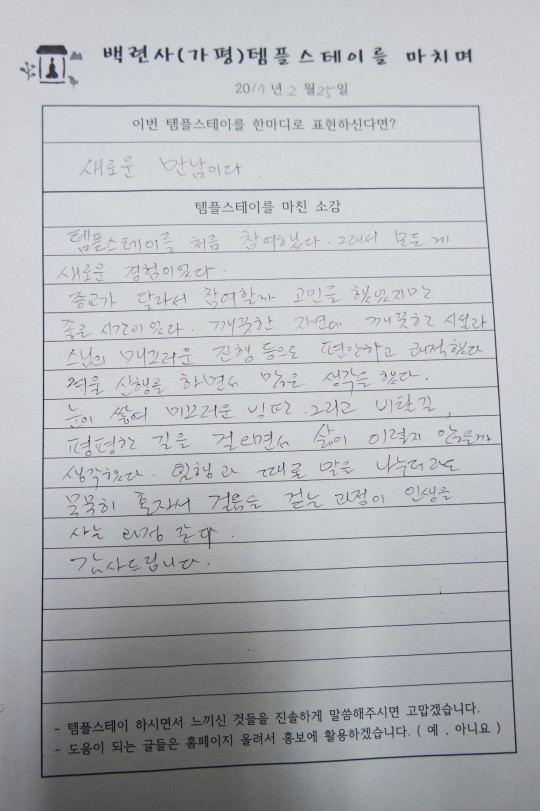 백련사(가평)템플스테이를 마치며
2017년 2월 25일
이번 템플스테이를 한마디로 표현하신다면?
새로운 만남이다.
템플스테이를 마친 소감
템플스테이를 처음 참여했다. 그래서 모든게
새로운 경험이었다.
종교가 달라서 참여할까 고민을 했었지만
좋은 시간이었다. 깨끗한 자연에 깨끗한 시설과
스님의 매끄러운 진행 등으로 편안하고 쾌적했다
겨울 산행을 하면서 많은 생각을 했다.
눈이 쌓여 미끄러운 빙판 그리고 비탈길,
평평한 길을 걸으면서 삶이 이렇지 않을까
생각했다. 일행과 때로 말을 나누더라도
묵묵히 혼자서 걸음을 걷는 과정이 인생을
사는 과정 같다.
감사드립니다.
- 템플스테이 하시면서 느끼신 것들을 진솔하게 말씀해주시면 고맙겠습니다.
- 도움이 되는 글들은 홈페이지 올려서 홍보에 활용하겠습니다. ( 예 , 아니요 )